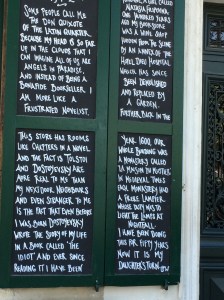 SOME PEOPLE CALL ME
THE DON QUIXOTE
OF THE LATIN QUARTER
BECAUSE MY HEAD IS SO FAR
UP IN THE CLOUDS THAT I
CAN IMAGINE ALL OF US ARE
ANGELS IN PARADISE,
AND INSTEAD OF BEING A
BONAFIDE BOOKSELLER I
AM MORE LIKE A
FRUSTRATED NOVELIST.
THIS STORE HAS ROOMS
LIKE CHAPTERS IN A NOVEL
AND THE FACT IS TOLSTOI
AND DOSTOYEVSKY ARE
MORE REAL TO ME THAN
MY NEXT DOOR NEIGHBOURS
AND EVEN STRANGER TO ME
IS THE FACT THAT EVEN BEFORE
I WAS BORN DOSTOYEVSKY
WROTE THE STORY OF MY LIFE
IN A BOOK CALLED 'THE
IDIOT' AND EVER SINCE
READING IT I HAVE BEEN
A GIRL CALLED
NASTASIA PHILIPOVNA.
ONE HUNDRED YEARS
AGO MY BOOKSTORE
WAS A WINE SHOP
HIDDEN FROM THE SEINE
BY AN ANNEX OF THE
HOTEL DIEU HOSPITAL
WHICH HAS SINCE
BEEN DEMOLISHED
AND REPLACED BY
A GARDEN.
FURTHER BACK IN THE
YEAR 1600, OUR
WHOLE BUILDING WAS
A MONASTERY CALLED
'LA MAISON DU MUSTIER'
IN MEDIEVAL TIMES
EACH MONASTERY HAD
A FRERE LAMPIER
WHOSE DUTY WAS TO
LIGHT THE LAMPS AT
NIGHTFALL.
I HAVE BEEN DOING
THIS FOR FIFTY YEARS
NOW IT IS MY
DAUGHTER'S TURN. GW